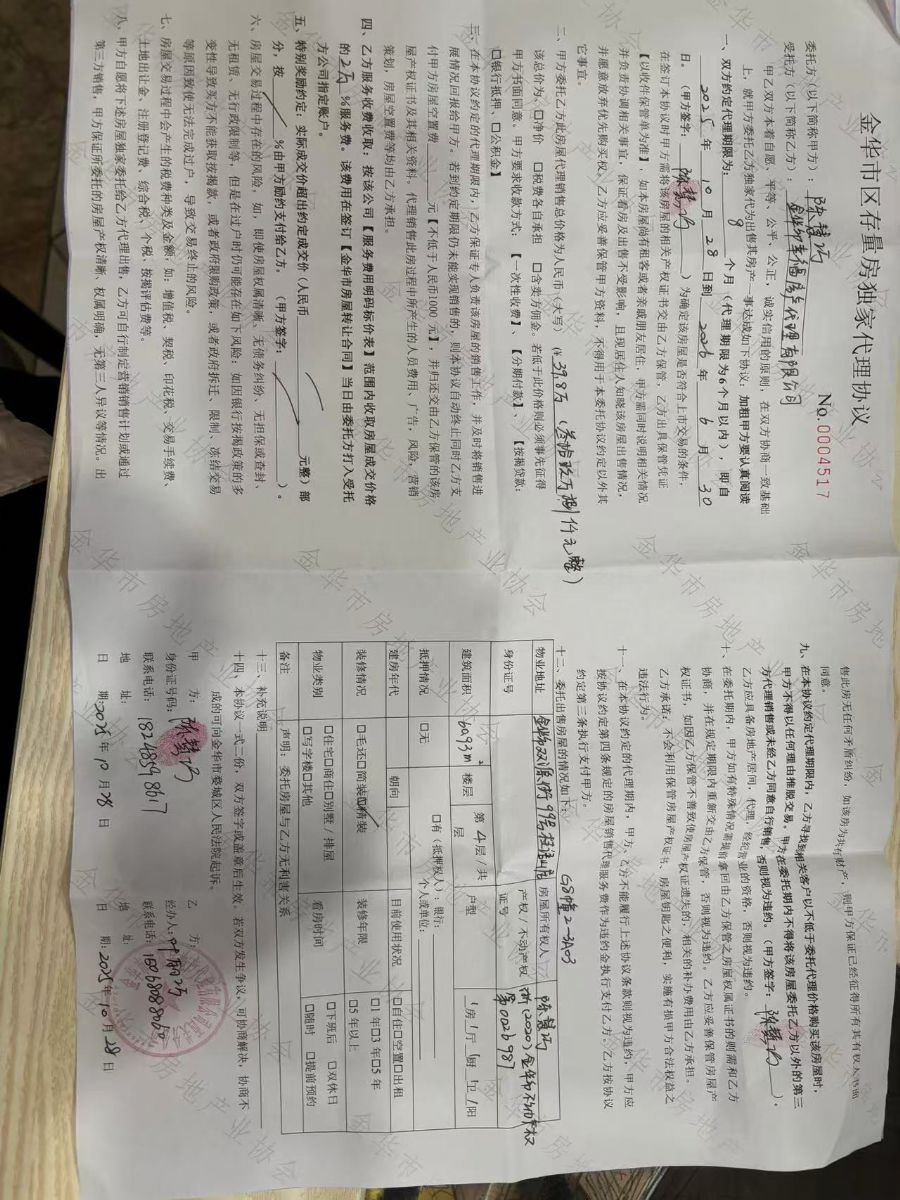 金华市区存量房独家代理协议
No.0004517
委托方(以下简称甲方):
受托方(以下简称乙方):
甲乙双方本着自愿、平等、公平、公正,诚实信用的原则,在双方协商一致基础
上,就甲方委托乙方独家代为出售其房产一事达成如下协议,加粗甲方要认真阅读
一、双方约定代理期限为: 9 个月(代理期限为6个月以内),即自
2025 年 10 月 28 日到 2026 年 6 月 30
日。(甲方签字: )为确定该房屋是否符合上市交易的条件,
在签订本协议时甲方需将该房屋的相关产权证书交由乙方保管,乙方出具保管凭证
【以收件保管单为准】,如本房屋尚有租客或者亲戚朋友居住,甲方需同时说明相关情况
并负责协调相关事宜,保证看房及出售不受影响,且现居住人知晓该房屋出售情况,
并愿意放弃优先购买权。乙方应妥善保管甲方资料,不得用于本委托协议约定以外其
它事宜。
二、甲方委托乙方此房屋代理销售总价格为人民币(大写)(¥39.8万(叁拾玖万捌仟元整)
该总价为:□净价 □税费各自承担 □含卖方佣金。若低于此价格则必须事先征得
甲方书面同意。甲方要求收款方式:【一次性收费】、【分期付款】、【按揭贷款:
□银行抵押、□公积金】
三、在本协议约定的代理期限内,乙方保证专人负责该房屋的销售工作,并及时将销售进
展情况回报给甲方。若到约定期限仍未能实现销售的,则本协议自动终止同时乙方支
付甲方房屋空置费 元【不低于人民币1000 元】,并归还交由乙方保管的该房
屋产权证书及其相关资料。代理销售此房过程中所产生的人员费用、广告、风险、营销
策划,房屋空置费等均由乙方承担。
四、乙方服务收费收取:按该公司【服务费用明码标价表】范围内收取房屋成交价格
的 2万 %服务费。该费用在签订【金华市房屋转让合同】当日由委托方打入受托
方公司指定账户。
五、特别奖励约定:实际成交价超出约定成交价(人民币 元整)部
分,按 %由甲方励约支付给乙方。(甲方签字: )。
六、房屋交易过程中存在的风险,如,即使房屋权属清晰、无债务纠纷、无担保或查封、
无租赁、无行政限制等,但是在过户时仍可能存在如下风险:如因银行按揭政策的多
变性导致买方不能获取按揭款,或者政府限购政策,或者政府拆迁、限制、冻结交易
等原因致使无法完成过户,导致交易终止的风险。
七、房屋交易过程中会产生的税费种类及金额,如:增值税、契税、印花税、交易手续费、
土地出让金、注册登记费、综合税、个税、按揭评估费等。
八、甲方自愿将下述房屋独家委托给乙方代理出售,乙方可自行制定营销销售计划或通过
第三方销售,甲方保证所委托的房屋产权清晰、权属明确,无第三人异议等情况。出
售此房无任何矛盾纠纷,如该房为共有财产,则甲方保证已经征得所有其有权人书面
同意。
九、在本协议约定代理期限内,乙方寻找到相关客户以不低于委托代理价格购买该房屋时,
甲方不得以任何理由推脱交易。甲方在委托期内不得将该房屋委托乙方以外的第三
方代理销售或未经乙方同意自行销售,否则视为违约。(甲方签字: ),
乙方应具备房地产居间,代理,经纪营业的资格,否则视为违约。
十、在委托期内,甲方如有特殊情况需提前拿回由乙方保管之房屋权属证书的则需和乙方
协商,并在规定期限内重新交由乙方保管,否则视为违约。乙方应妥善保管房屋产
权证书,如因乙方保管不善致使房屋产权证遗失的,相关的补办费用由乙方承担。
乙方承诺:不会利用保管房屋产权证书、房屋钥匙之便利,实施有损甲方合法权益之
违法行为。
十一、在本协议约定的代理期内,甲方、乙方不能履行上述协议条款则视为违约,甲方应
按协议约定第四条规定的房屋销售代理服务费作为违约金执行支付乙方;乙方按协议
约定第三条执行支付甲方。
十二、委托出售房屋的情况如下: G8幢2-3A03
物业地址 房屋所有权人
身份证号 产权/不动产权证号 浙(2020)金华市不动产权第0026987
建筑面积 69.93m² 楼层 第 4 层/共 层 户型 1房1厅1厨1卫1阳
抵押情况 □无 □有(抵押权人):银行: 个人或单位:
建房年代 朝向 目前使用状况 □自住□空置□出租
装修情况 □毛还□简装☑精装 装修年限 □1年□3年□5年 □5年以上
物业类别 □住宅□商住□别墅/排屋 □写字楼□其他 看房时间 □下班后 □双休日 □随时 □提前预约
备注 声明:委托房屋与乙方无利害关系
十三、补充说明
十四、本协议一式二份,双方签字或盖章后生效。若双方发生争议,可协商解决,协商不
成的可向金华市婺城区人民法院起诉。
甲 方: 乙 方:
身份证号码: 经办人:
联系电话: 18248898617 联系电话:
地 址: 地 址:
日 期:2025 年 10 月 28 日 日 期:2025 年 10 月 28 日
金华市房地产业协会